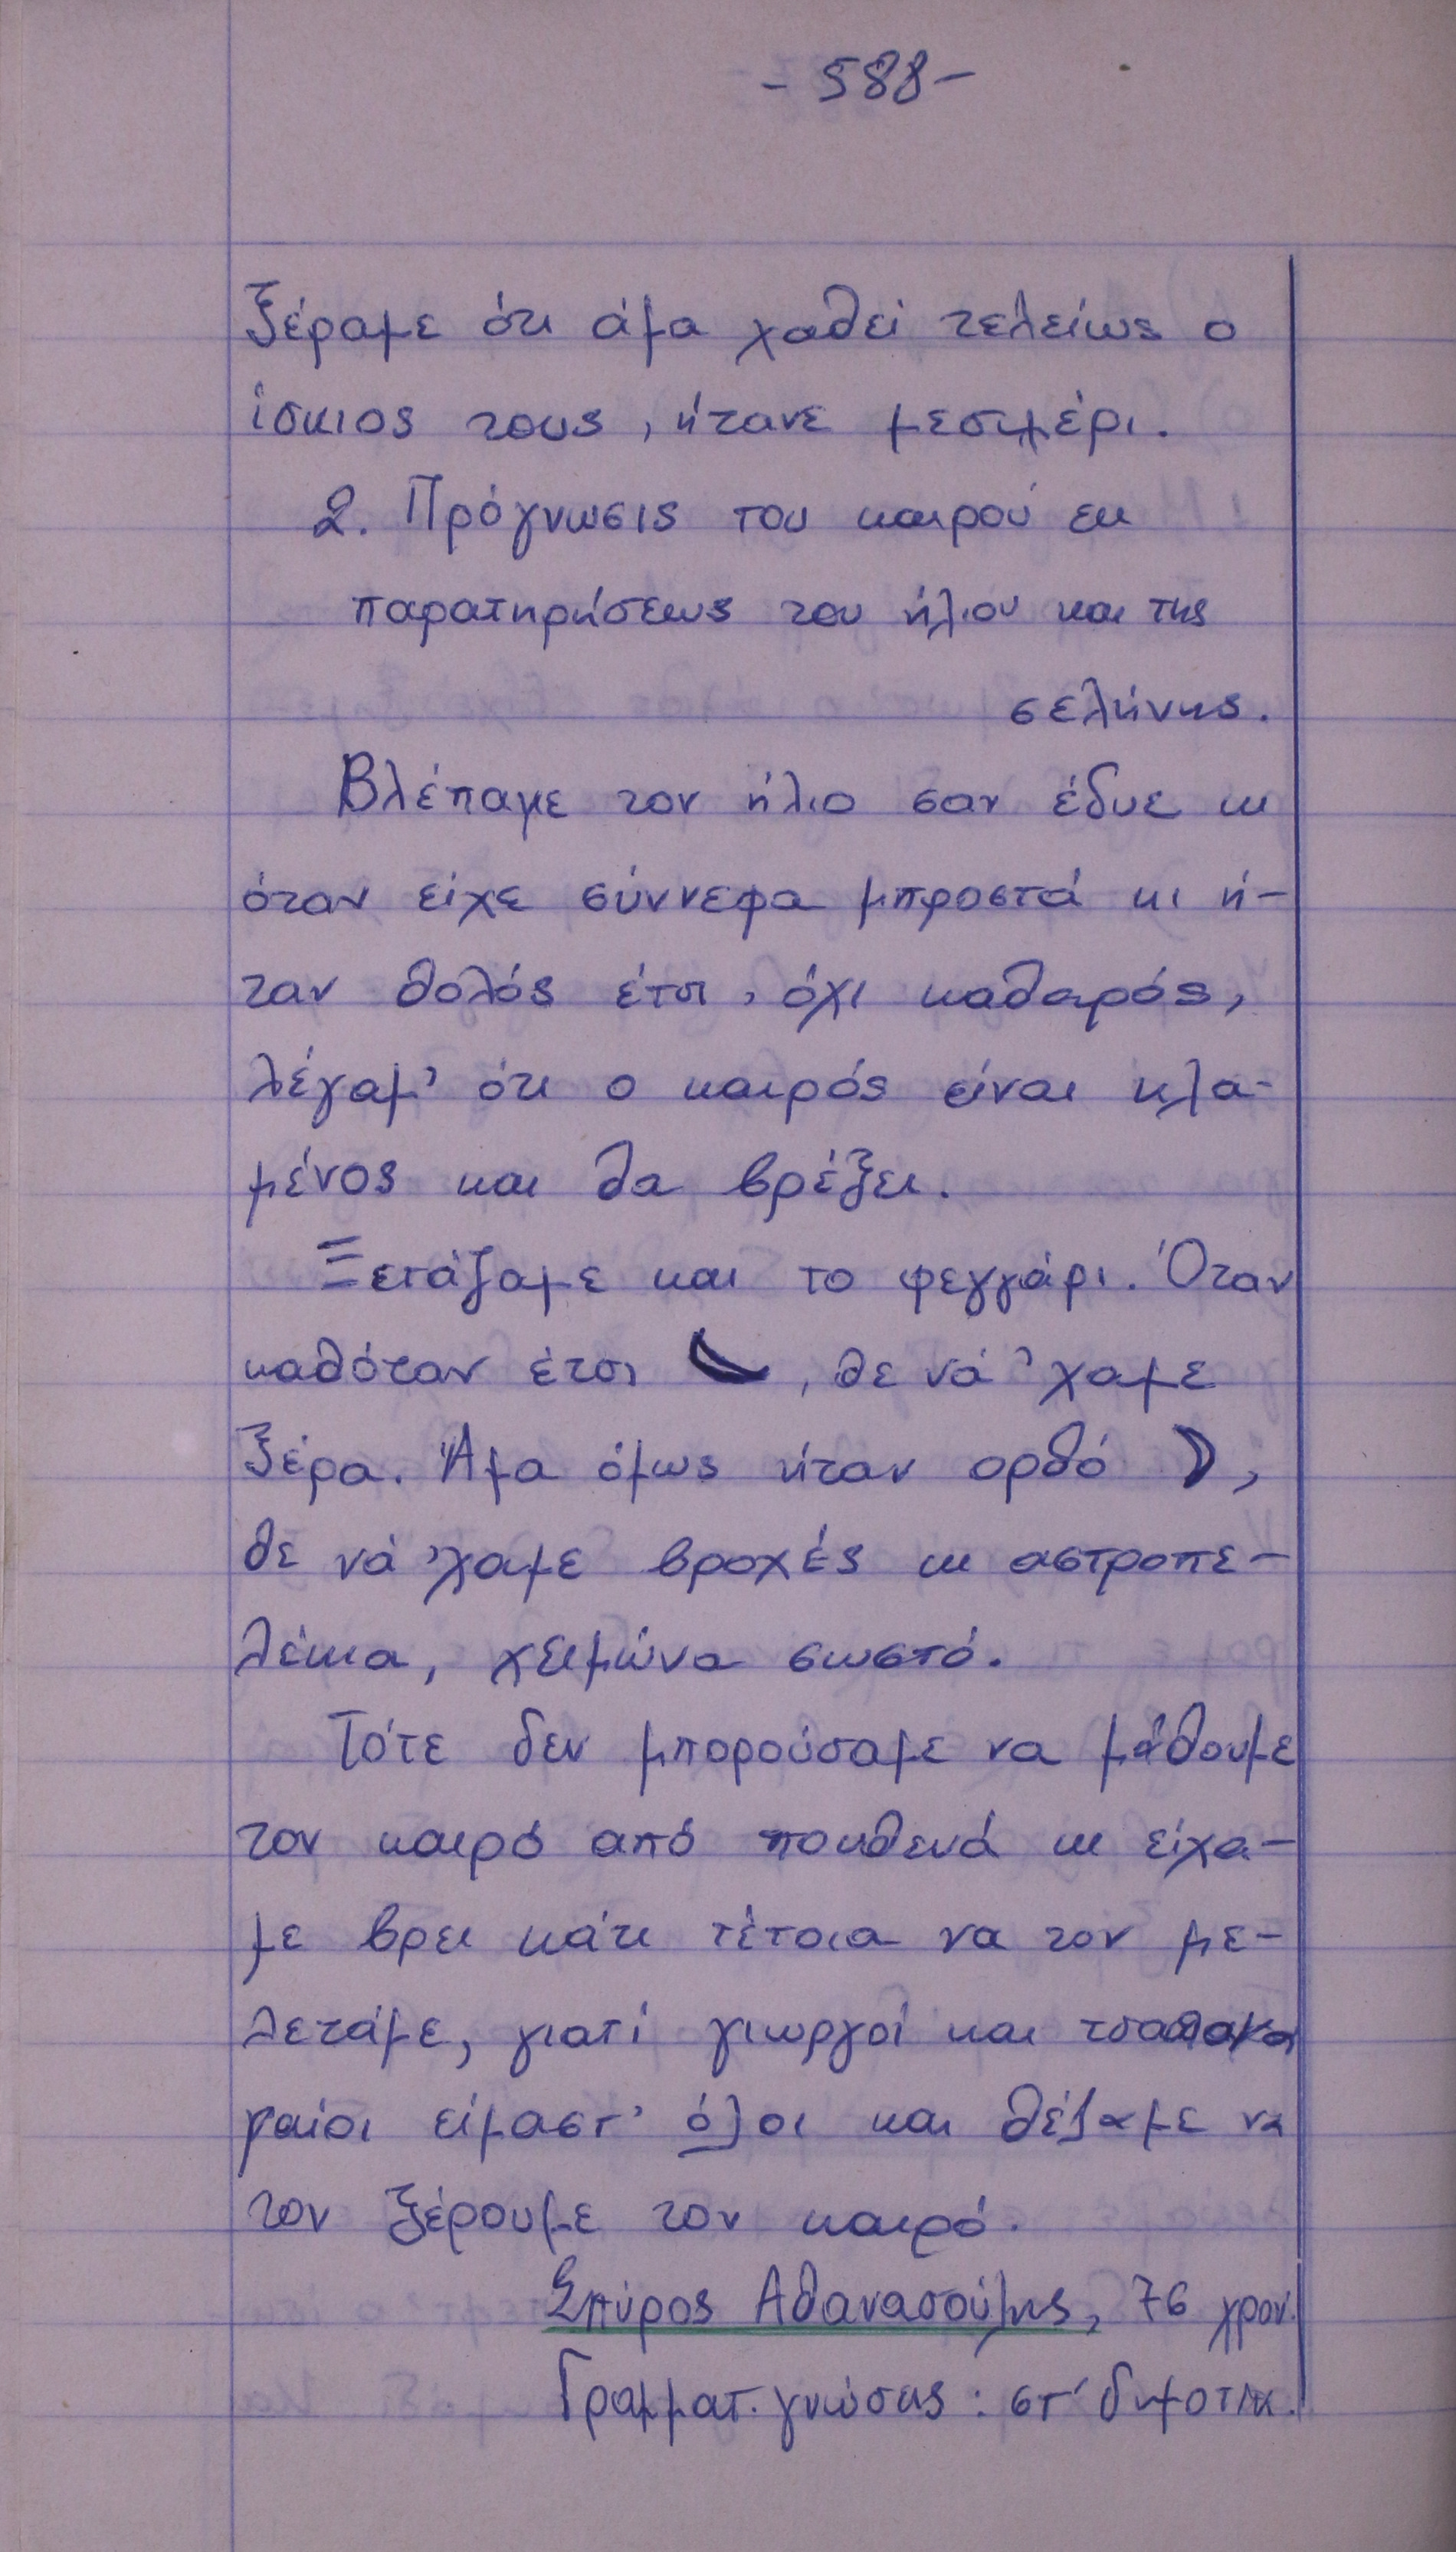 - 588 -
Ξέραμε ότι άμα χαθεί τελείως ο
ίσκιος τους, ήτανε μεσημέρι.
2. Πρόγνωσις του καιρού εκ
παρατηρήσεως του ήλιου και της
σελήνης.
Βλέπαμε τον ήλιο σαν έδυε κι
όταν είχε σύννεφα μπροστά κι ή-
ταν θολός έτσι, όχι καθαρός,
λέγαμ' ότι ο καιρός είναι κλα-
μένος και θα βρέξει.
Ξετάζαμε και το φεγγάρι. Όταν
καθόταν έτσι , θε νά 'χαμε
ξέρα. Άμα όμως ήταν ορθό ,
θε νά 'χαμε βροχές κι αστροπε-
λέκια, χειμώνα σωστό.
Τότε δεν μπορούσαμε να μάθουμε
τον καιρό από πουθενά κι είχα-
με βρει κάτι τέτοια να τον με-
λετάμε, γιατί γιωργοί και
είμαστ' όλοι και θέλαμε να
τον ξέρουμε τον καιρό.
Σπύρος Αθανασούλης, 76 χρον.
Γραμματ. γνώσεις : στ' δημοτικ.